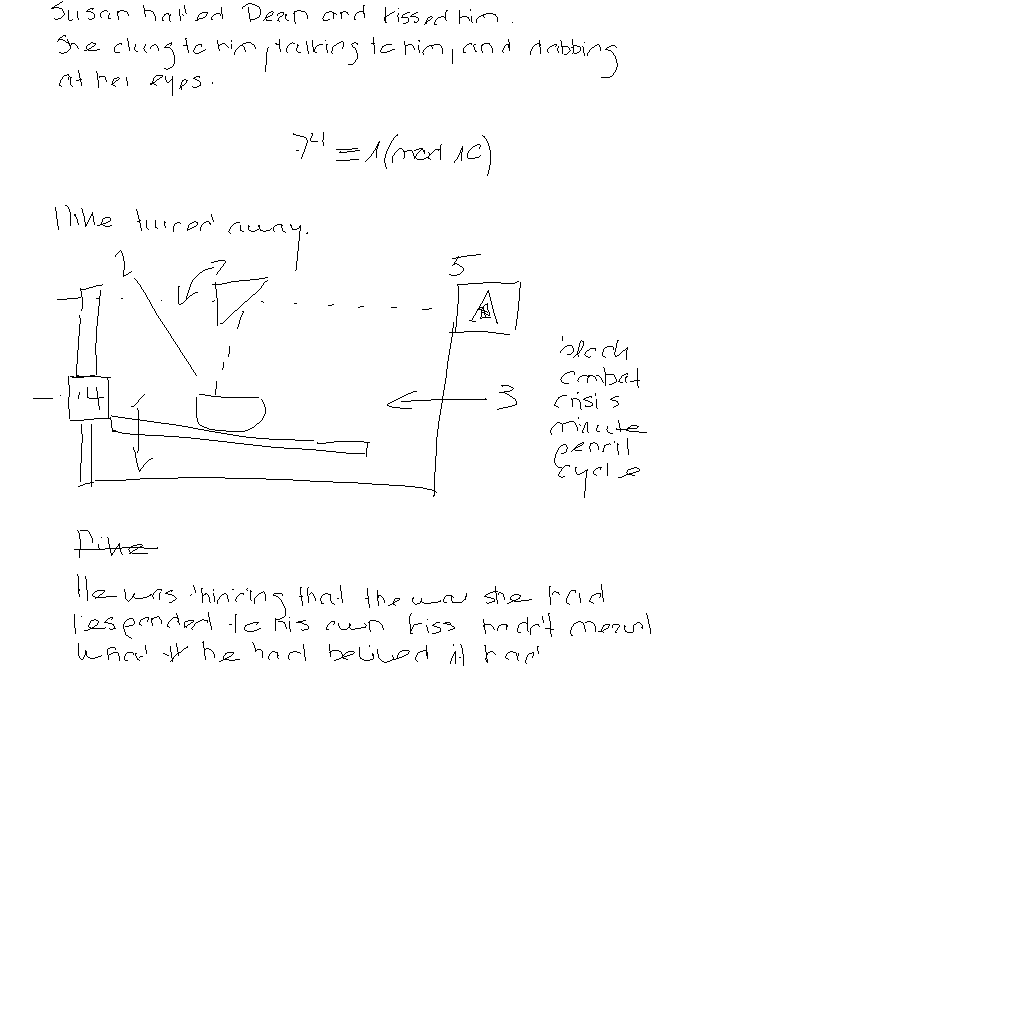 Susan hailed Dean and kissed him.
She clung to him, talking to him, and dabbing
at her eyes.
7^4 ≡ 1 (mod 10)
Mike turned away.
2
5
A
4
3
block
combat
crisis
minute
pencil
cycle
He was thinking that the way she had
responded to his own kiss hadn't meant
what he had belived it had